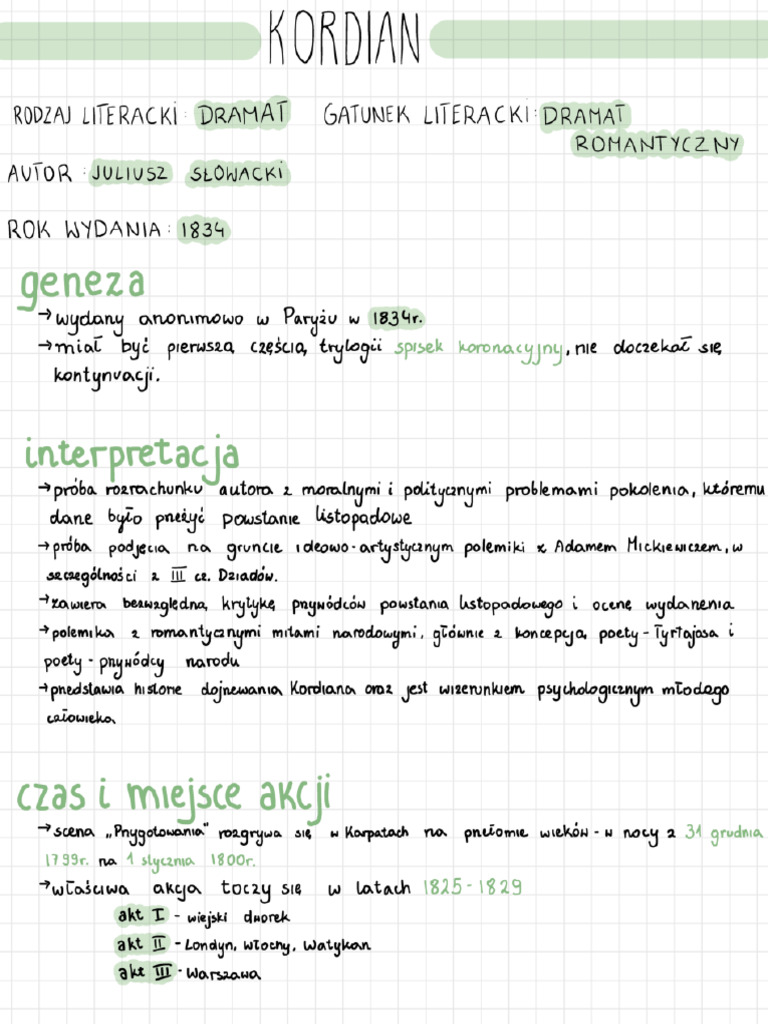 KORDIAN
RODZAJ LITERACKI: DRAMAT GATUNEK LITERACKI: DRAMAT
ROMANTYCZNY
AUTOR: JULIUSZ SŁOWACKI
ROK WYDANIA: 1834
geneza
→ wydany anonimowo w Paryżu w 1834r.
→ miał być pierwszą częścią trylogii spisek koronacyjny, nie doczekał się
kontynuacji.
interpretacja
→ próba rozrachunku autora z moralnymi i politycznymi problemami pokolenia, któremu
dane było przeżyć powstanie listopadowe
→ próba podjęcia na gruncie ideowo-artystycznym polemiki z Adamem Mickiewiczem, w
szczególności z III cz. Dziadów.
→ zawiera bezwzględną krytykę przywódców powstania listopadowego i ocenę wydarzenia
→ polemika z romantycznymi mitami narodowymi, głównie z koncepcją poety-Tyrtajosa i
poety-przywódcy narodu
→ przedstawia historie dojrzewania Kordiana oraz jest wizerunkiem psychologicznym młodego
człowieka
czas i miejsce akcji
→ scena „Przygotowania" rozgrywa się w Karpatach na przełomie wieków - w nocy z 31 grudnia
1799r. na 1 stycznia 1800r.
→ właściwa akcja toczy się w latach 1825-1829
akt I - wiejski dworek
akt II - Londyn, Włochy, Watykan
akt III - Warszawa